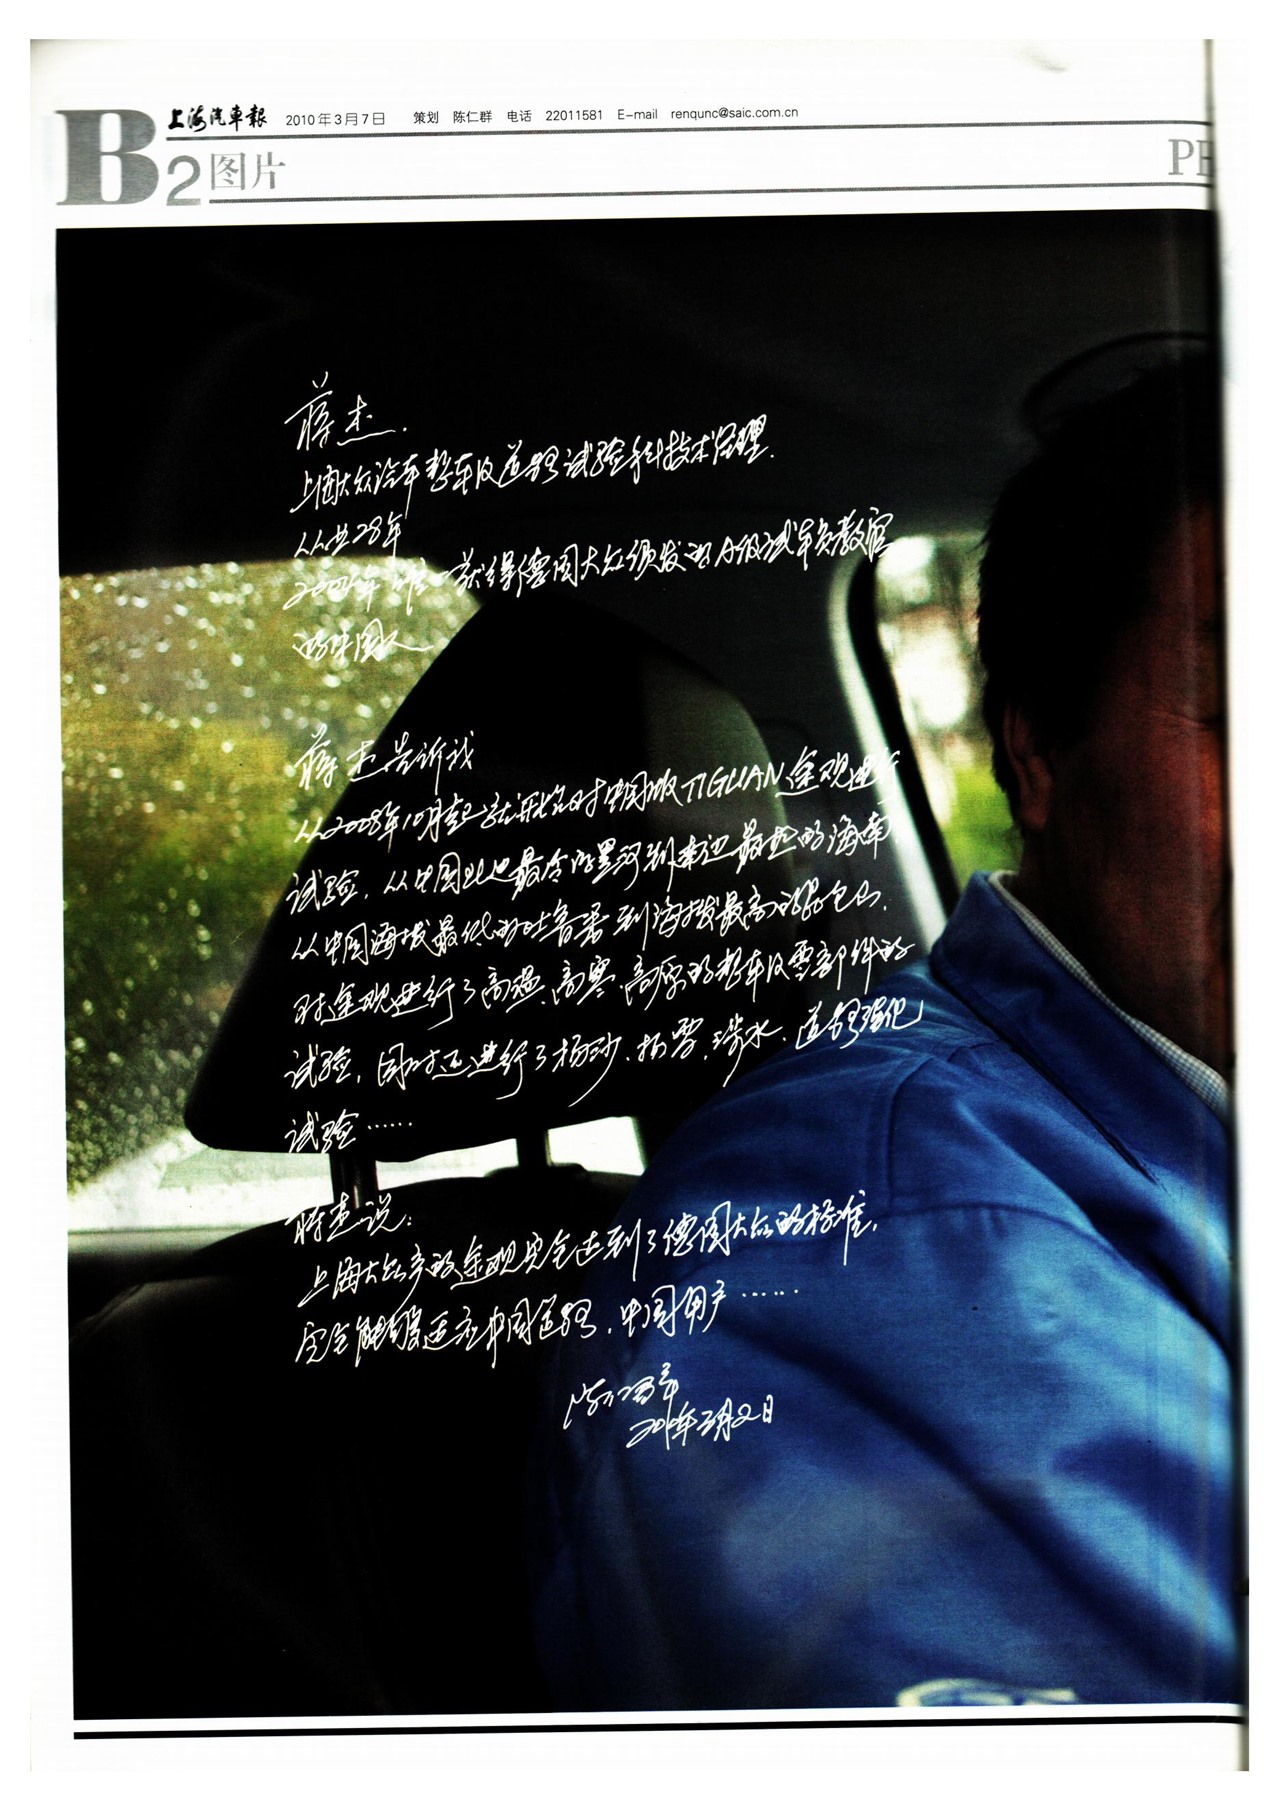 B2
上海汽車報 2010年3月7日 策划 陈仁群 电话 22011581 E-mail renqunc@saic.com.cn
图片
蒋杰.
上海大众汽车整车及道路试验科技术经理.
从业28年
唯一获得德国大众颁发的A级试车员教官
的中国人
蒋杰告诉我
从2008年10月起就开始对中国版TIGUAN途观进行
试验,从中国北边最冷的黑河到南边最热的海南,
从中国海拔最低的吐鲁番到海拔最高的
对途观进行了高温、高寒、高原的整车及零部件的
试验,同时还进行了扬沙、扬雪、涉水、道路强化
试验……
蒋杰说:
上海大众产的途观完全达到了德国大众的标准,
完全能够适应中国道路,中国用户……
2010年3月2日